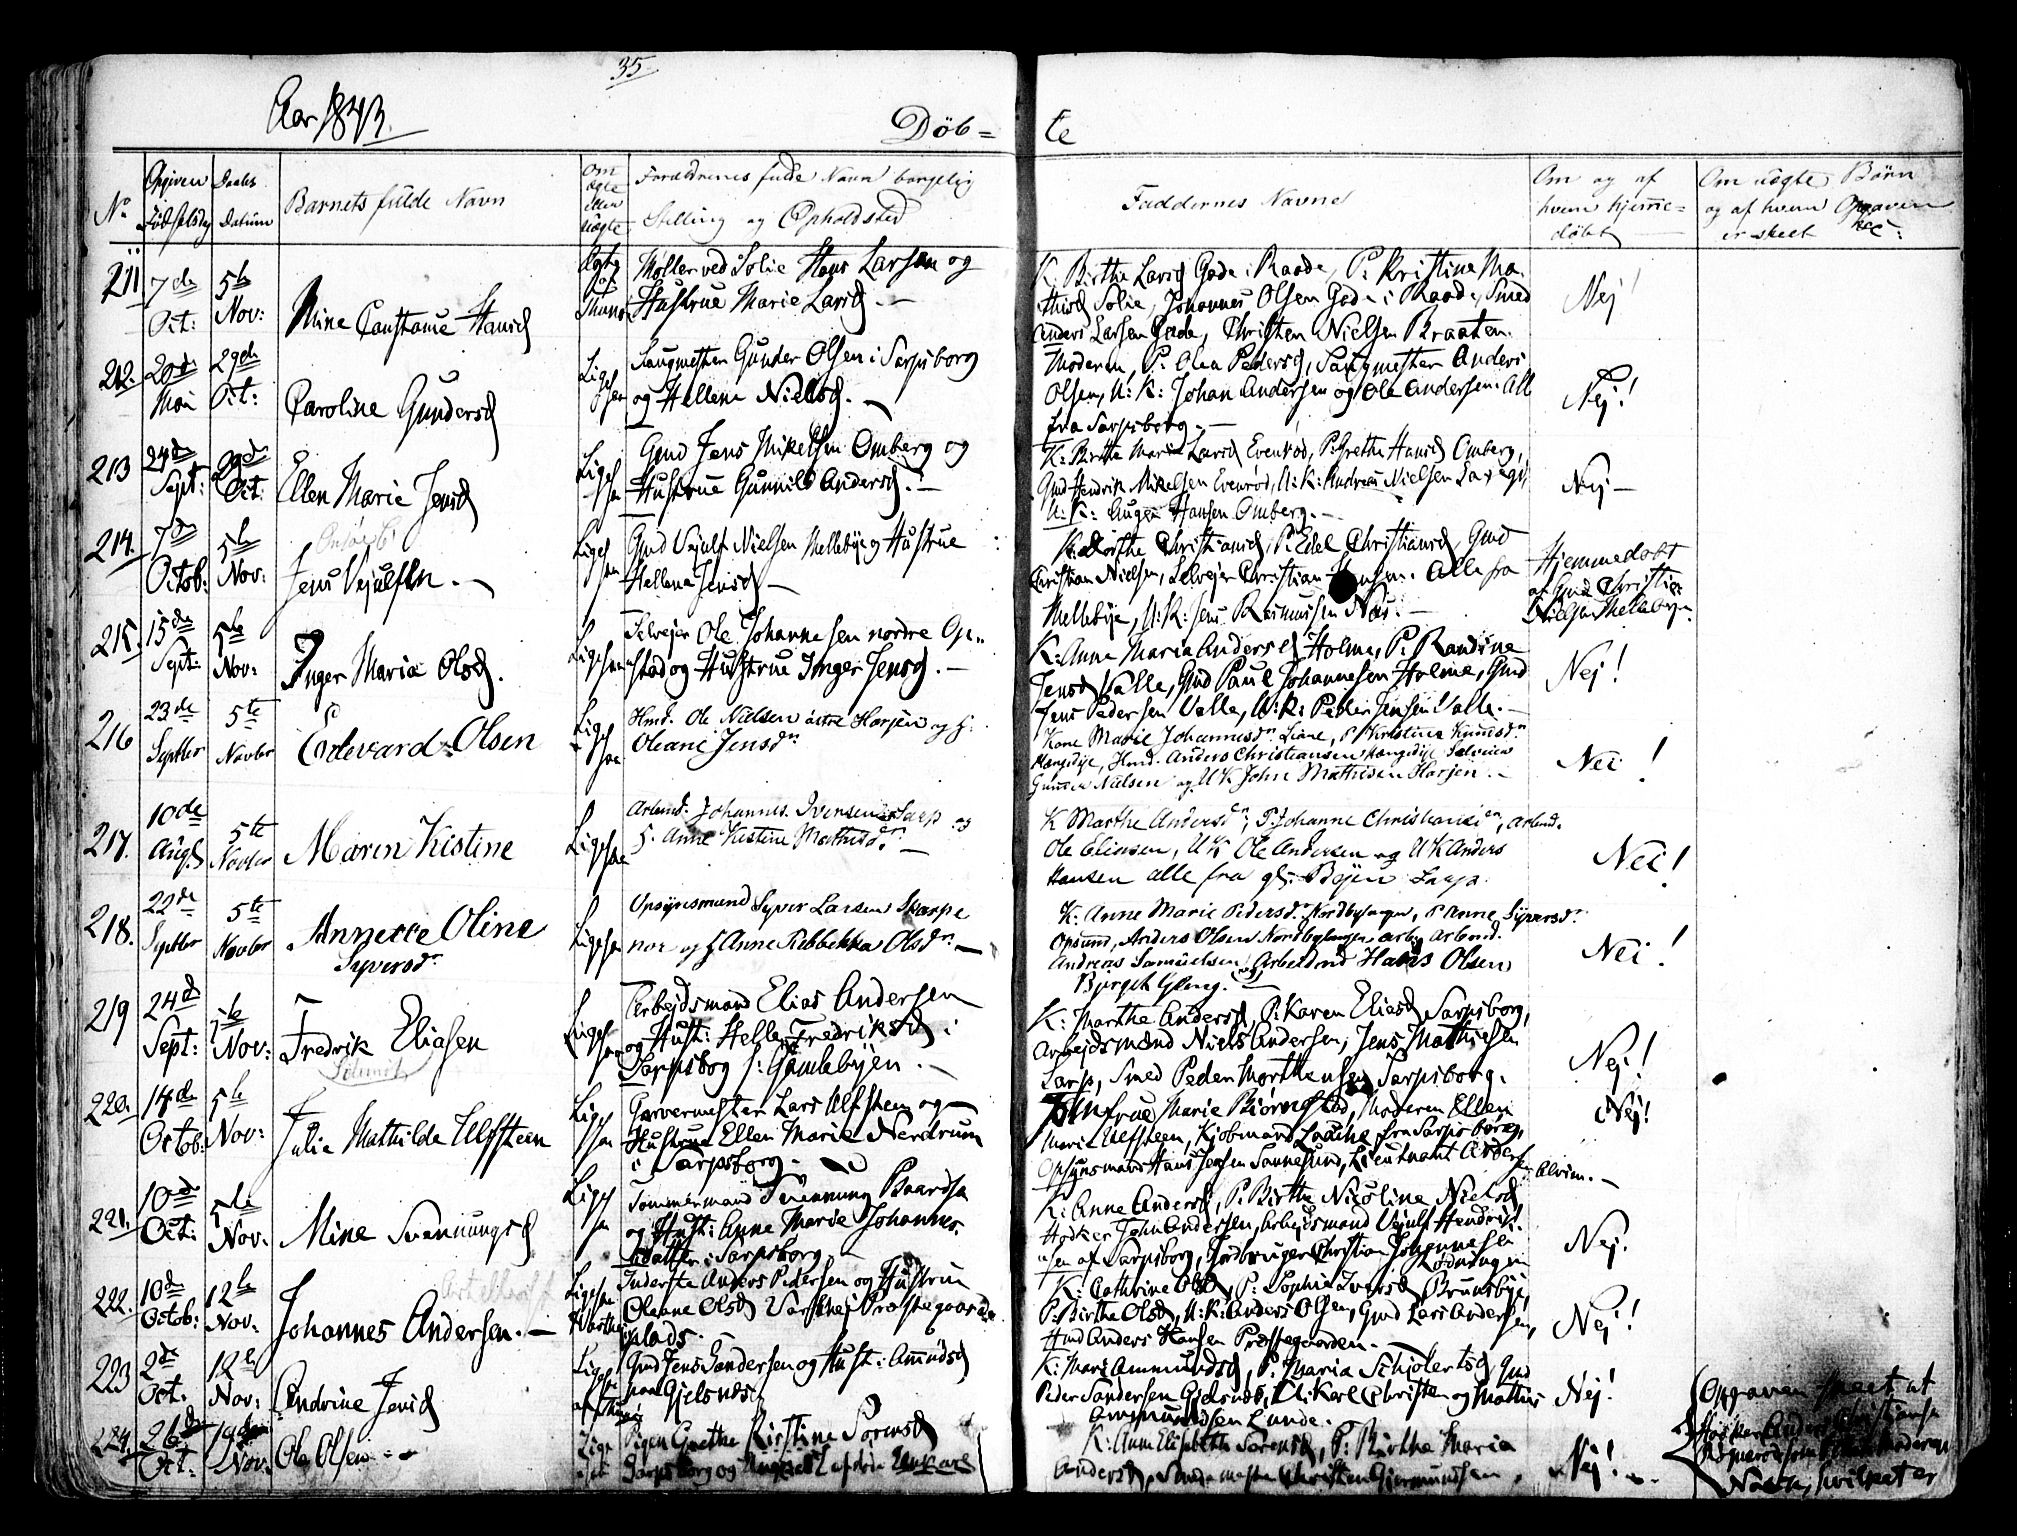 35
Aar 1843.
Døb=
te
No
Opgiven Fødselsdag
Daabs Datum
Barnets fulde Navn
Om ægte eller uægte
Forældrenes fulde Navn borgelig
Stilling og Opholdsted
Faddernes Navne
Om og af
hvem hjemme=
døbt
Om uægte Børn
og af hvem Opgaven
er skeet
211 7de Oct: 5te Nov: Mine Constance Hansd
Møller ved Solie Hans Larsen og
Hustrue Marie Larsd. —
K. Birthe Larsd Gade i Raade, P. Kristine Ma-
thisd Solie, Johannes Olsen Gade i Raade, Smed
Anders Larsen Gade, Christen Nielsen Braaten.
Nej!
212. 20de Mai 29de Oct: Caroline Gundersd
Ligesaa
Laugmester Gunder Olsen i Sarpsborg
og Hellene Nielsd. —
Moderen, P. Olea Pedersd, Laugmester Anders
Olsen, U: K: Johan Andersen og Ole Andersen. Alle
fra Sarpsborg. —
Nej!
213 24de Sept: 29de Oct: Ellen Marie Jensd
Ligesaa
Gmd Jens Mikelsen Omberg og
Hustrue Gunnild Andersd. —
K: Birthe Marie Larsd Evenrød, P. Grethe Hansd Omberg,
Gmd Hendrik Mikelsen Evenrød, U: K: Andreas Nielsen
U: K: August Hansen Omberg. —
Nej —
214. 7de Octob: 5te Nov: Jens Vejulfsen. —
Ligesaa
Gmd Vejulf Nielsen Mellebye og Hustrue
Hellena Jensd —
K: Dorthe Christiansd, P: Edel Christiansd, Gmd
Christian Nielsen, Selvejer Christian Hansen. Alle fra
Mellebye, U: K: Jens Rasmussen Næs. —
Hjemmedøbt
af Gmd Christian
Nielsen Mellebye.
215. 15de Sept: 5te Nov: Inger Maria Olsd.
Ligesaa
Selvejer Ole Johannesen nordre Op-
stad og Hustrue Inger Jensd. —
K: Anne Maria Andersd Holme, P. Randine
Jensd Valle, Gmd Paul Johannesen Holme, Gmd
Jens Pedersen Valle, U: K: Peder Jensen Valle. —
Nej!
216 23de Septbr 5te Novbr Edevard Olsen
Ligesaa
Hmd. Ole Nielsen østre Horjen og H.
Oleane Jensdr
Kone Marie Johannesdr Liane, P Kristine
Hængedije, Hmd. Anders Christiansen Hængedije Selveier
Gunder Nielsen og U K John Mathisen Horjen. —
Nei!
217. 10de Augs 5te Novbr Maren Kistine
Ligesaa
Arbmd. Johannes Ivensen Sarp og
H. Anne Kistine Mathisdr. —
K Marthe Andersdr, P. Johanne Christiansdr, Arbmd.
Ole Eliasen, U K Ole Andersen og U K Anders
Hansen alle fra gl. Byen Sarp.
Nei!
218. 22de Septbr 5te Novbr Annette Oline
Syversdr
Ligesaa
Opsynsmand Syver Larsen Skarpe
nor og H Anne Rebbekka Olsdr. —
K: Anne Marie Pedersdr. Nordbylangen, P Anne Syversdr
Opsund, Anders Olsen Nordbylangen, Arbmd.
Andreas Samuelsen, Arbeidmd Hans Olsen
Borget Gleng. —
Nei!
219 24de Sept: 5te Nov: Fredrik Eliasen
Ligesaa
Arbejdsmand Elias Andersen
og Hust: Helle Fredriksd i
Sarpsborg s: Gamlebyen. —
K: Marthe Andersd, P: Karen Eliasd Sarpsborg,
Arbejdsmænd Niels Andersen, Jens Mathiesen
Sarp, Smed Peder Morthensen Sarpsborg.
Nej!
220. 14de Octob: 5te Nov: Julie Mathilde Ulfsteen
Ligesaa
Garvermester Lars Ulfsteen og
Hustrue Ellen Marie Nerdrum
i Sarpsborg. —
Jomfrue Marie Biørnestad, Moderen Ellen
Marie Ulfsteen, Kjøbmand fra Sarpsborg,
Opsynsmand Hans Jensen Sannesund, Lieutnant Andersen Alvim. —
Nej!
221. 10de Oct: 5te Nov: Mine Svennungsd
Ligesaa
Tømmermand Svennung Baardsen
og Hust: Anne Marie Johannes-
datter i Sarpsborg —
K: Anne Andersd, P: Birthe Nicoline Nielsd
Høker John Andersen, Arbejdsmand Vejulf Hendrik-
sen af Sarpsborg, Jordbruger Christian Johannesen
Nej.
222. 10de Octob: 12te Nov: Johannes Andersen. —
Ligesaa
Inderste Anders Pedersen og Hustrue
Oleane Olsd Præstegaards
plads. —
K: Cathrine Olsd, P: Sophie Iversd Bruunsbye,
P. Birthe Olsd, U: K: Anders Olsen, Gmd Lars Andersen,
Hmd Anders Hansen Præstegaarden. —
Nej!
223 2de Oct: 12te Nov: Andrine Jensd
Ligesaa
Gmd Jens Sandersen og Hust: Amundsd
paa Gjelsnæs
K: Mari Ammundsd, P: Maria Schjolertsd, Gmd
Peder Sandersen Gjelsnæs, U: Karl Christen og Mathis
Ammundsen Lunde.
Nej!
224. 26de Oct: Nov: Ole Olsen —
Pigen Grethe Kirstine Sørensd
Sarpsborg og Ungkarl
K: Anne Elisabeth Sørensd, P: Birthe Maria
Andersd, Christen Gjermundsen
Nej!
Opgaven skeet at
Høker Anders Christiansen
Moderen